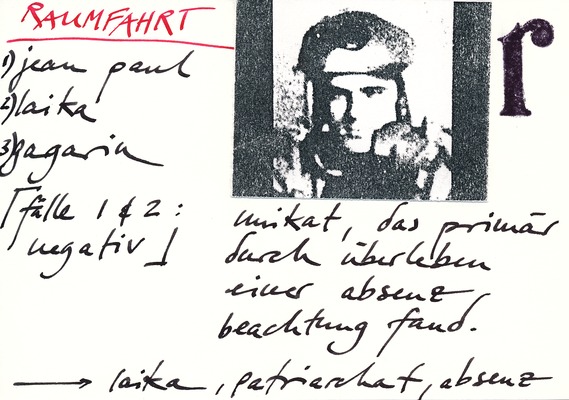 RAUMFAHRT
r
1) jean paul
2) laika
3) gagarin
[fälle 1 & 2 :
negativ]
unikat, das primär
durch überleben
einer absenz
beachtung fand.
→ laika, patriarchat, absenz